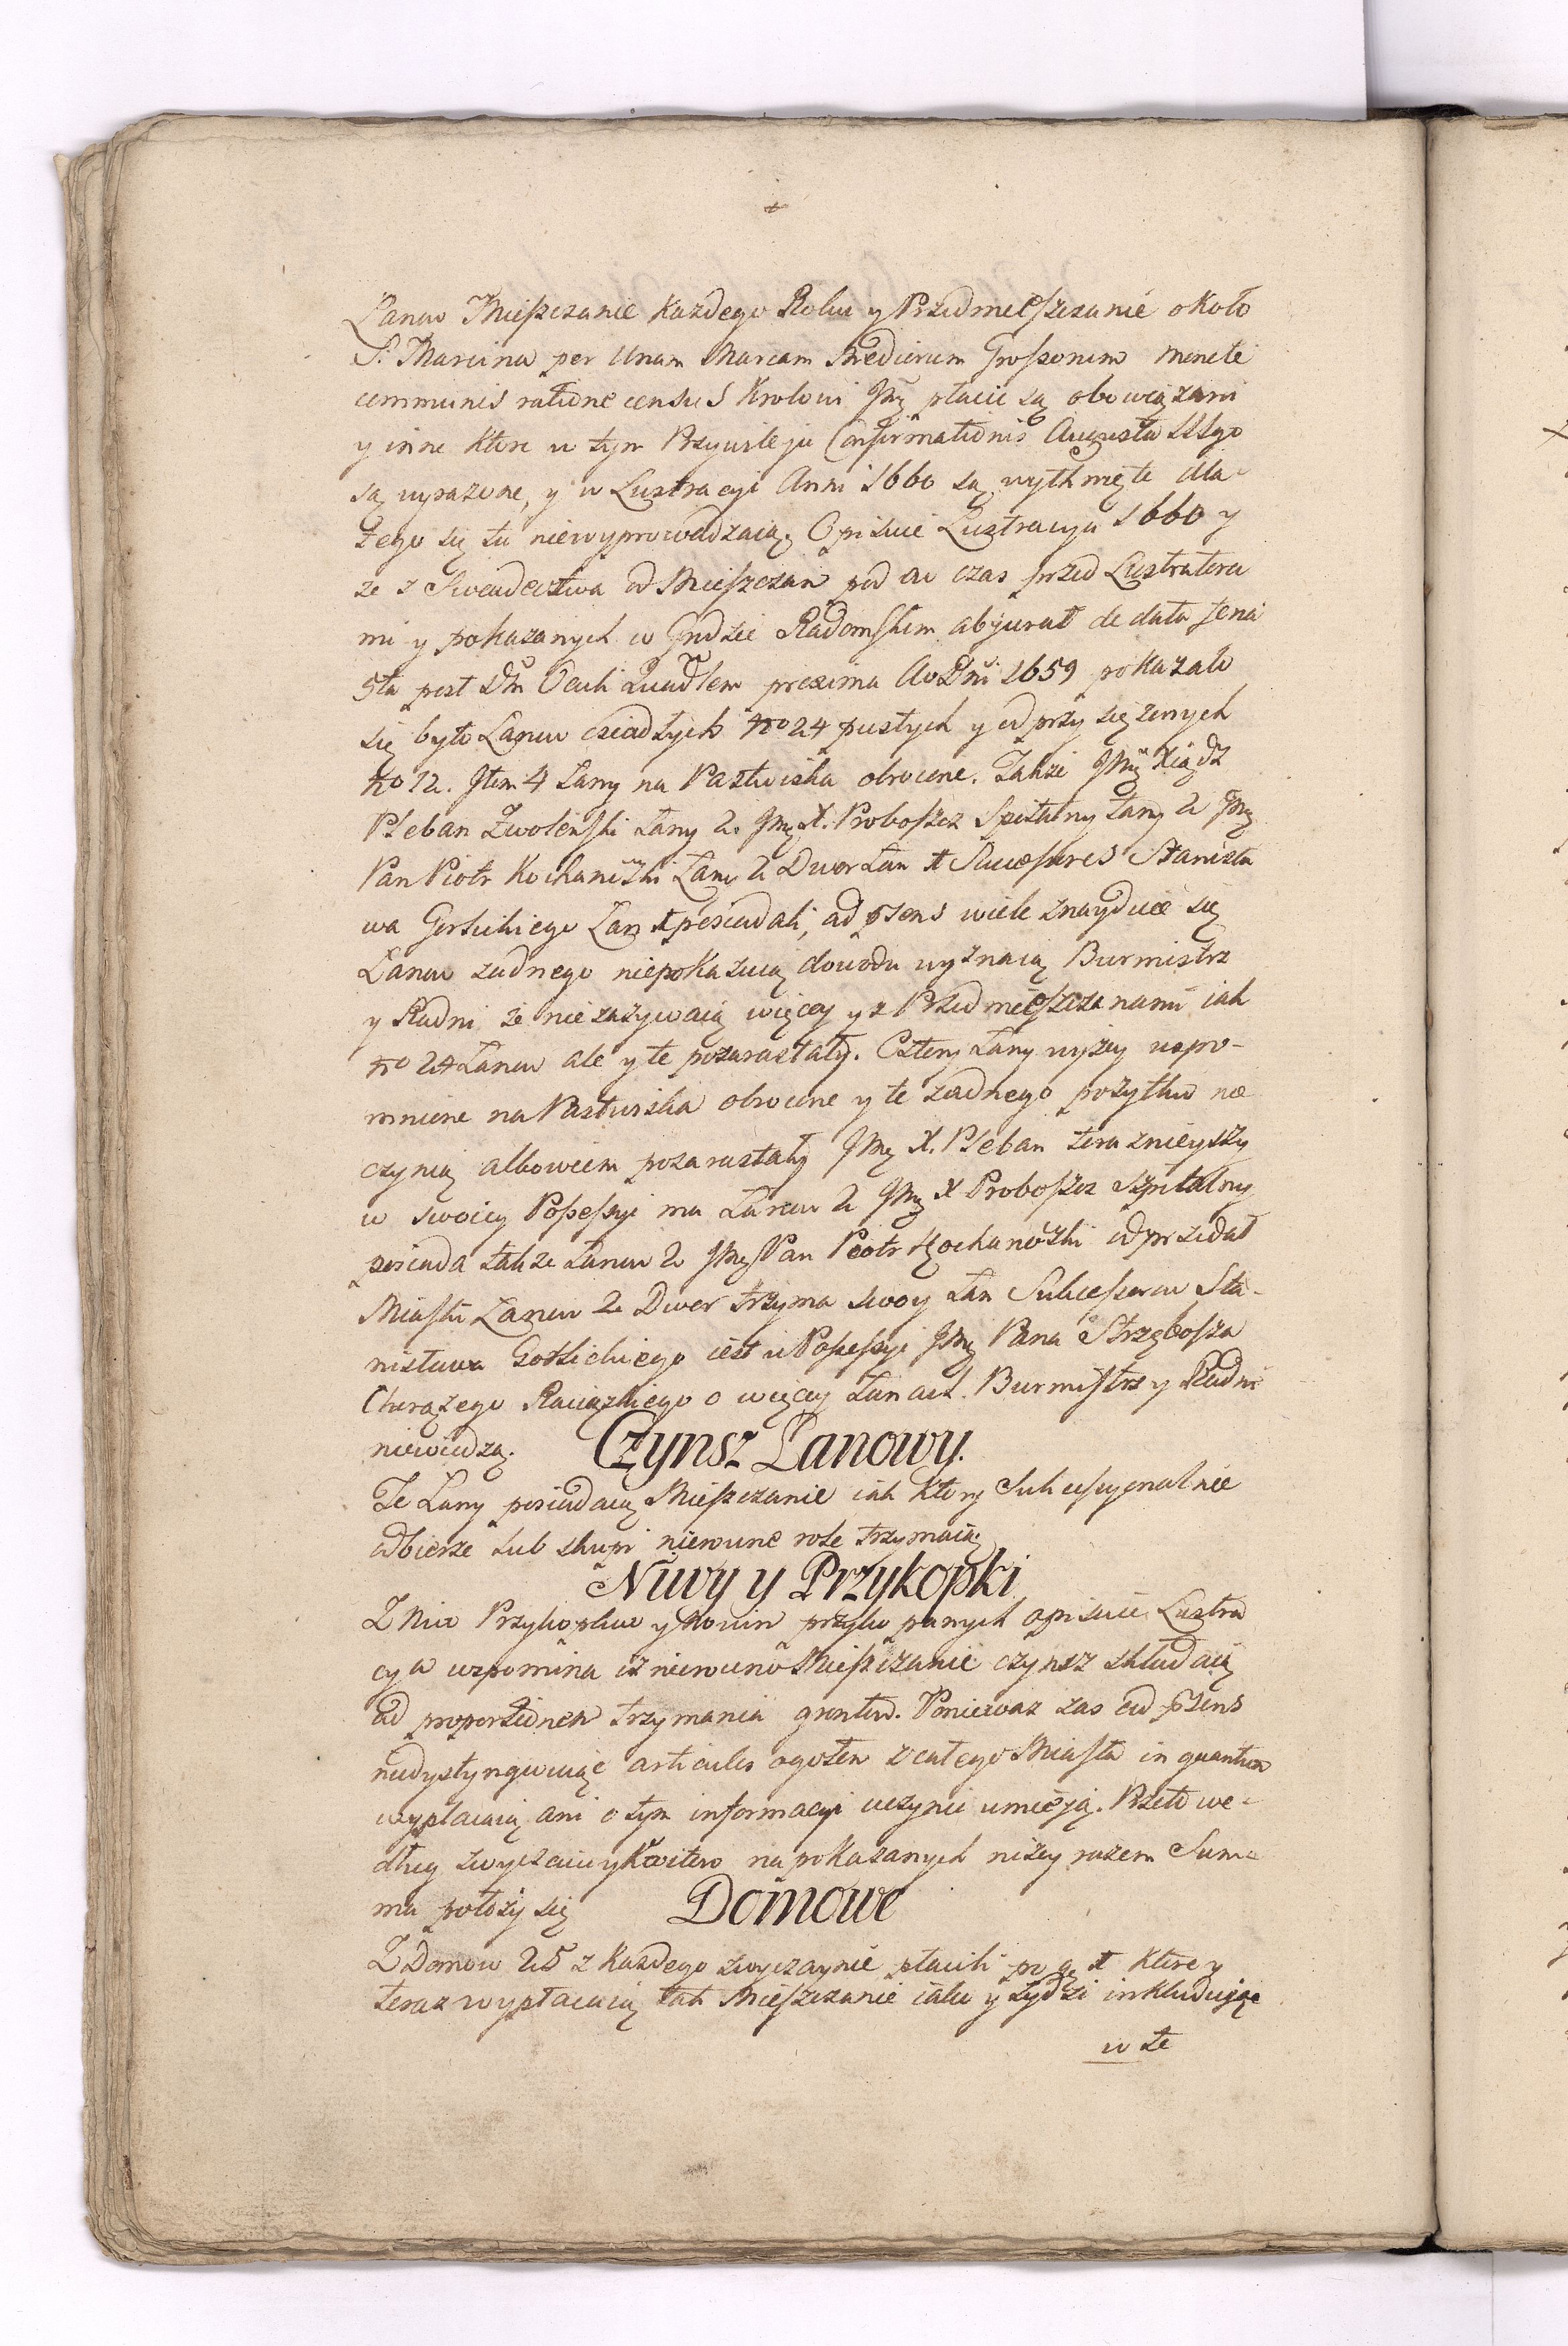 Łanow Mieszczanie każdego Roku y Przedmieszczanie około
S. Marcina per Unam Marcam Mediorum Grossorum monete
communis ratione census Krolowi Jmę płacic są obowiązani
y inne ktore w tym Przywileju Confirmationis Augusta IIIgo
są wyrażone, y w Lustracyi Anni 1660 są wythnięte dla-
tego się tu niewyprowadzaią. Opisuie Lustracya 1660 y
ze z Swiadectwa od Mieszczan pod ow czas przed Lustratora
mi y pokazanych w Grodzie Radomskim abjurat de data feria
5ta post Dm Oculi Quadlem proxima Ao Dni 1659 pokazało
się było Łanow osiadłych No 24 pustych y odprzysiężonych
No 12. Jtem 4 Łany na Pastwiska obrocone. Także Jmę Xiądz
Pleban Zwolenski Łany 2. Jmę X. Proboszcz Szpitalny Łany 2 Jmę
Pan Piotr Kochanowski Łanow 2 Dwor Łan 1 Sucessores Stanisła
wa Gorlickiego Łan 1 posiadali, ad psens wiele znayduie się
Łanow zadnego niepokazuią dowodu wyznaią Burmistrz
y Radni że nie zażywaią więcey y z Przedmieszczanami iak
No 24 Łanow ale y te pozarastały. Cztery Łany wyżey wspo-
mnione na Pastwiska obrocone y te żadnego pożytku nie
czynią albowiem pozarastały Jmę X. Pleban teraznieyszy
w swoiey Possessyi ma Łanow 2 Jmę X Proboszcz Szpitalny
posiada także Łanow 2 Jmę Pan Piotr Kochanowski odprzedał
Miastu Łanow 2 Dwor trzyma swoy Łan Sukcessorow Sta-
nisława Gorlickiego iest w Possessyi Jmę Pana Strzębosza
Chorążego Raciązkiego o więcey Łanach Burmistrz y Radni
niewiedzą. Czynsz Łanowy.
Te Łany posiadaią Mieszczanie iak ktory Sukcessyonalnie
odbierze lub skupi nierowne role trzymaią
Niwy y Przykopki
Z Niw Przykopkow y Nowin przykopanych opisuie Lustra
cya wzpomina iż nierowno Mieszczanie czynsz składaią
ad proportionem trzymania grontow. Ponieważ zas ad psens
niedystyngwuiąc articulos ogołem z całego Miasta in quantum
wypłacaią ani o tym informacyi uczynic umieją. Przeto we-
dług zwyczaiu y Kwitow na pokazanych niżey razem Sum-
ma położy się Domowe
Z Domow 25 z każdego zwyczaynie płacili po gr 1 ktore y
teraz wypłacaią tak Mieszczanie iako y Zydzi inkludując
w te